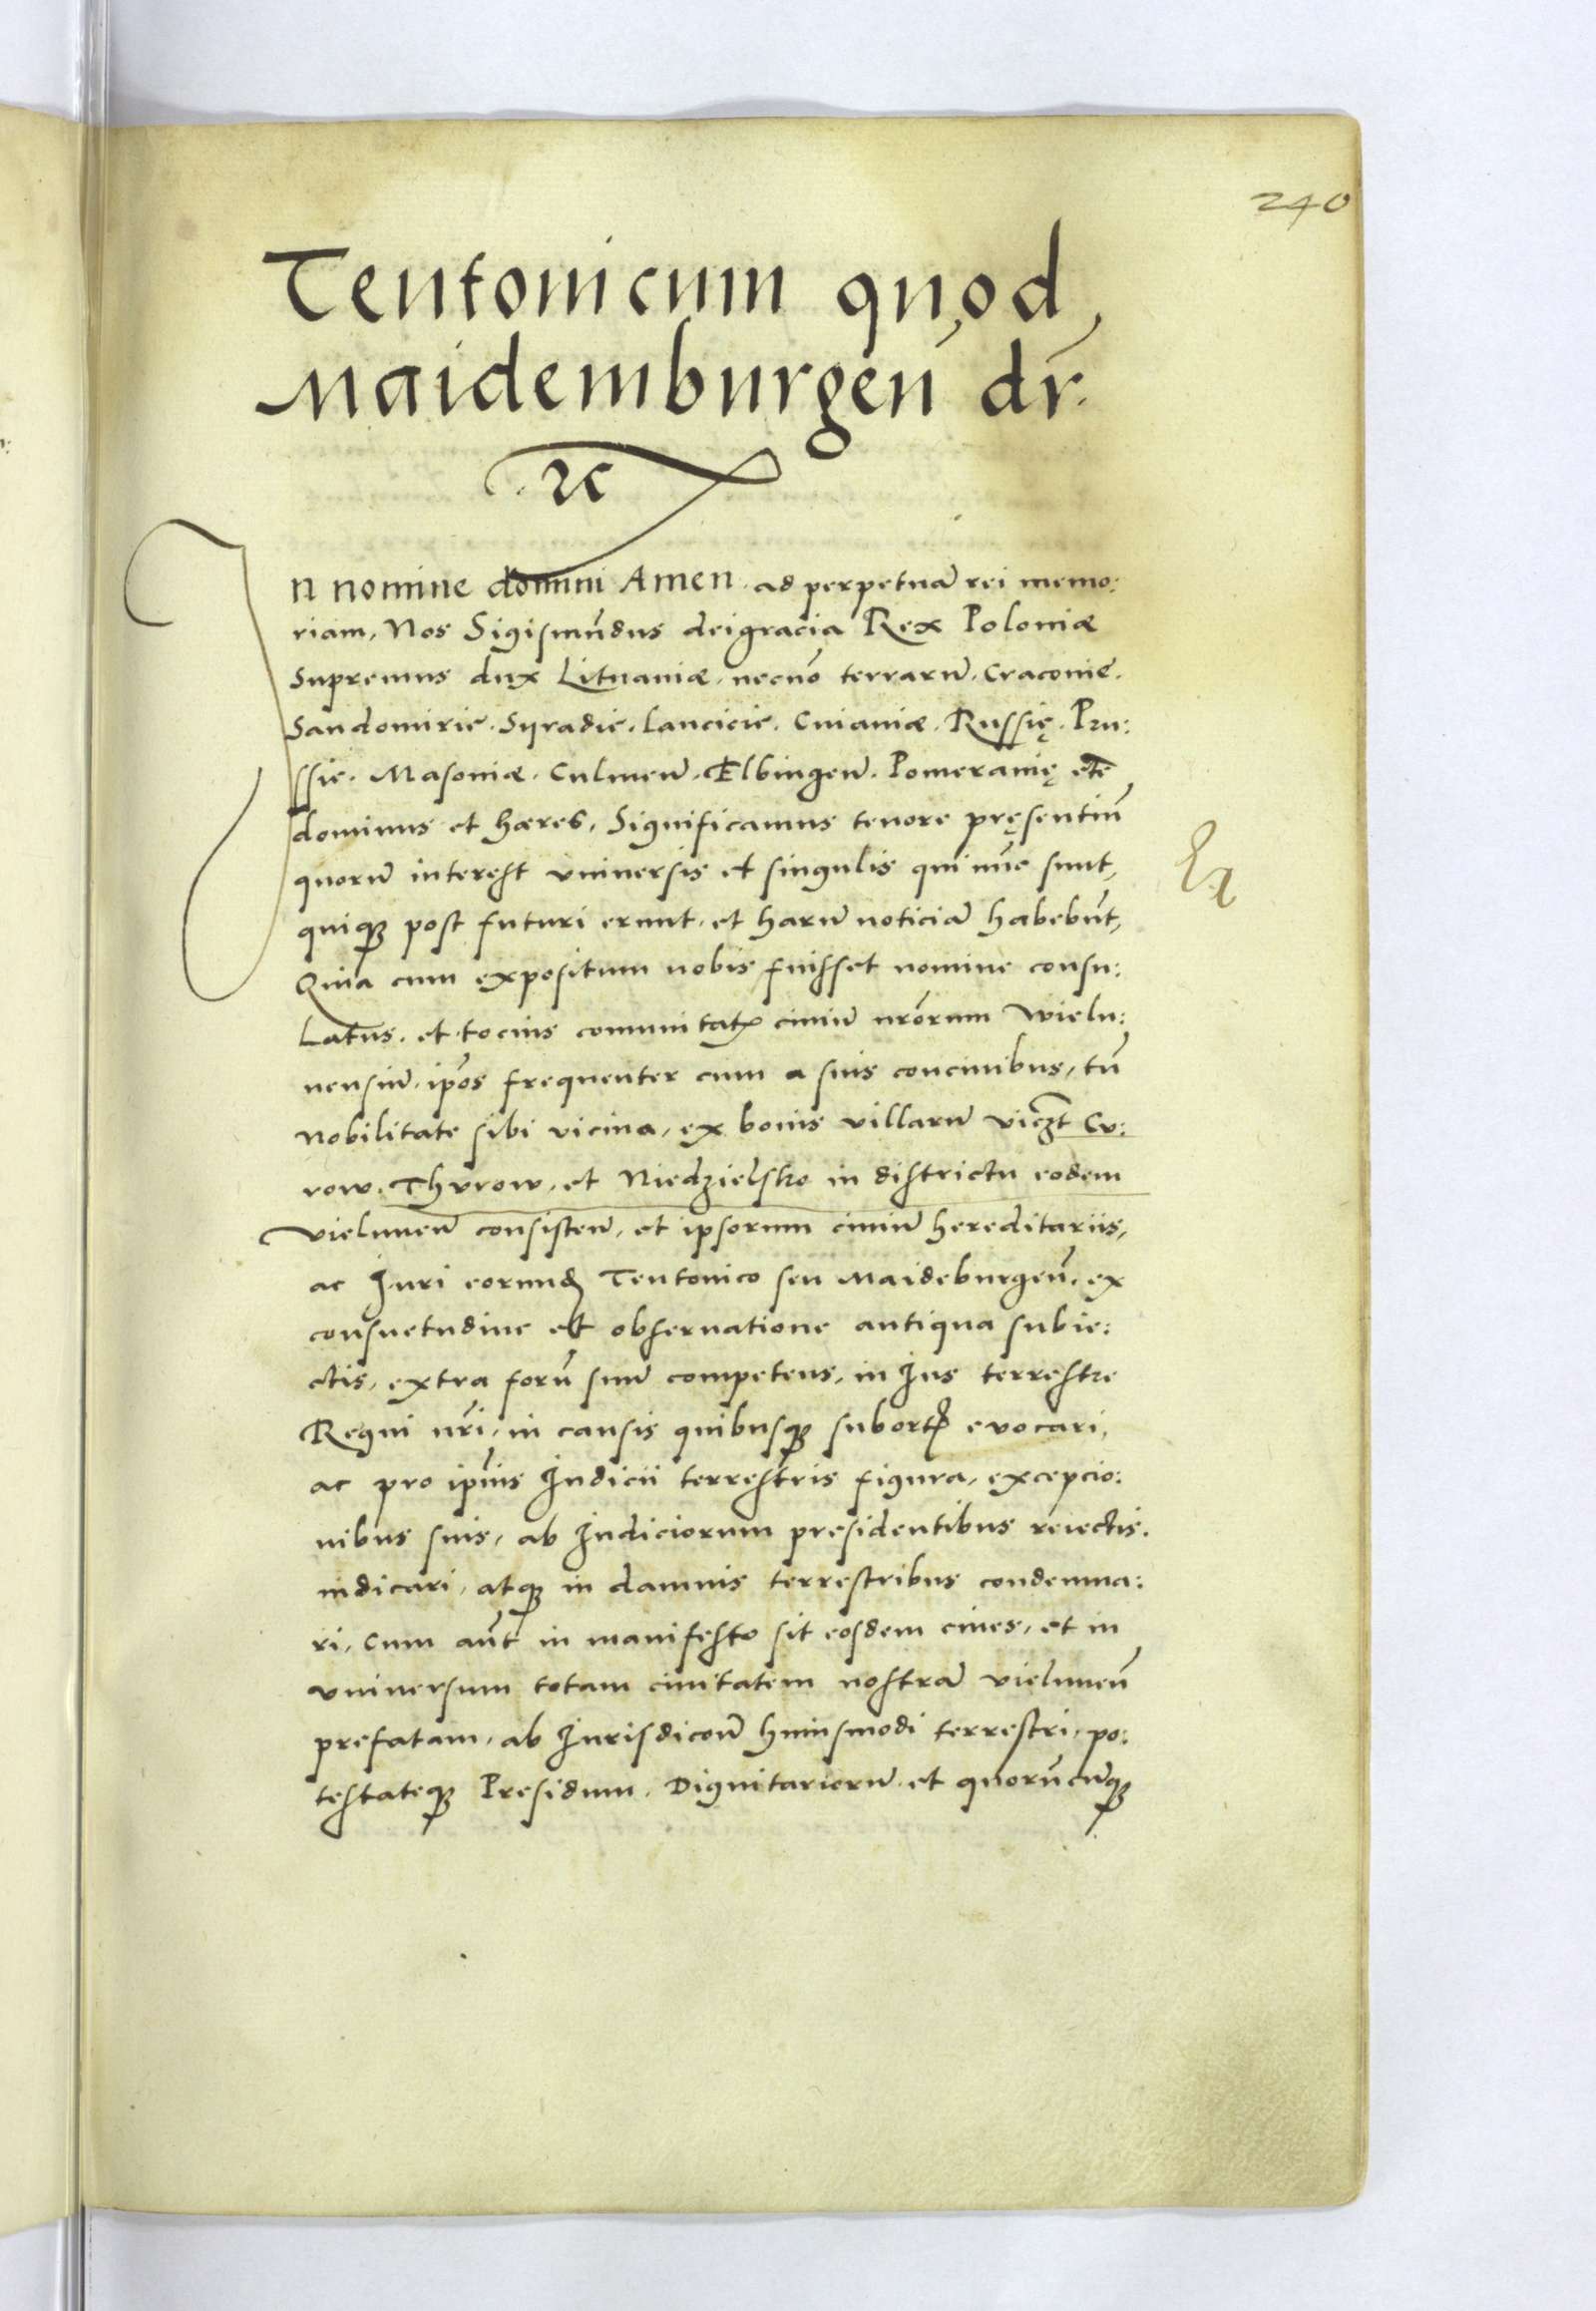 240
Teutonicum quod
Maidemburgen̄ dr̄.
·ꝛc
In nomine domini Amen. ad perpetuā rei memo:
riam, Nos Sigismūdus dei gracia Rex Poloniæ
Supremus dux Lituaniæ. necnō terrarū. Cracovie.
Sandomirie. Syradie. Lancicie. Cuiaviæ. Russię. Pru:
ssie. Masoviæ. Culmeñ. Elbingeñ. Pomeranię etc̄
dominus et hæres, Significamus tenore pręsentiū
quorū interest vniversis et singulis qui nūc sunt,
quiqꝫ post futuri erunt. et harū noticiā habebūt,
Quia cum expositum nobis fuisset nomine consu:
latus. et tocius comunitatꝭ civiū nr̄orum Wielu:
nensiū. ip̄os frequenter cum a suis concivibus, tū
nobilitate sibi vicina, ex bonis villarū vicꝫt Cu:
row. Thurow. et Niedzielsko in districtu eodem
vieluneñ consisteñ, et ipsorum civiū hereditariis,
ac Iuri eorundꝫ Teutonico seu Maideburgeñ. ex
consuetudine et observatione antiqua subie:
ctis, extra forū suū competens, in Ius terrestre
Regni nr̄i, in causis quibusqꝫ subortꝭ evocari,
ac pro ip̄ius Iudicii terrestris figura, excepcio:
nibus suis, ab Iudiciorum presidentibus reiectis.
iudicari, atqꝫ in damnis terrestribus condemna:
ri, Cum aūt in manifesto sit eosdem cives, et in
vniversum totam civitatem nostrā vieluneñ
prefatam, ab Iurisdicōn̄ huiusmodi terrestri, po:
testateqꝫ Presidum. Dignitariorū et quorūcūqꝫ